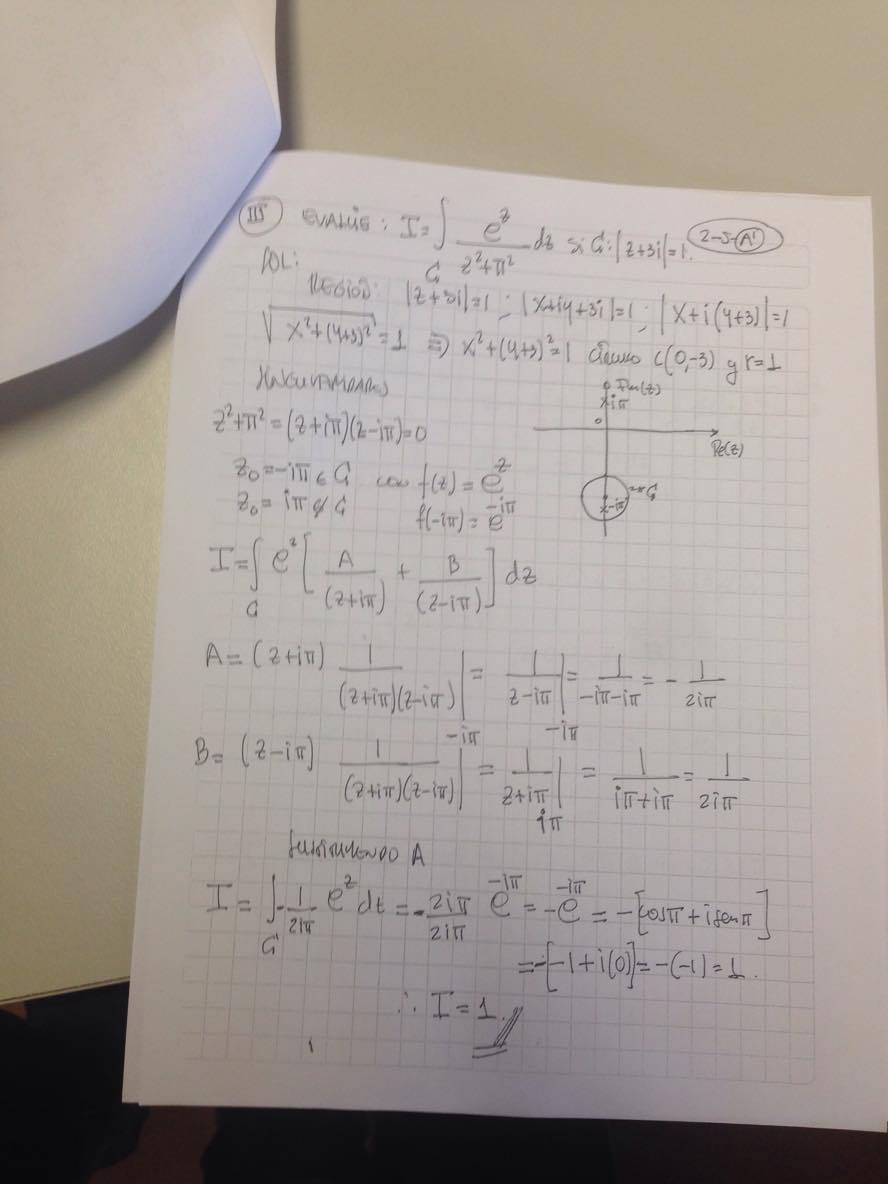 III EVALÚE: I = ∫_C e^z / (z²+π²) dz si C: |z+3i|=1. 2-5-A1
SOL:
REGIÓN: |z+3i|=1 ; |x+iy+3i|=1 ; |x+i(y+3)|=1
√(x²+(y+3)²) = 1 ⇒ x²+(y+3)²=1 círculo C(0,-3) y r=1
Im(z)
iπ
0
Re(z)
z²+π² = (z+iπ)(z-iπ)=0
z₀=-iπ ∈ C con f(z) = e^z
z₀= iπ ∉ C f(-iπ) = e^{-iπ}
C
-iπ
I = ∫_C e^z [ A/(z+iπ) + B/(z-iπ) ] dz
A = (z+iπ) 1/((z+iπ)(z-iπ)) |_{-iπ} = 1/(z-iπ) |_{-iπ} = 1/(-iπ-iπ) = - 1/(2iπ)
B = (z-iπ) 1/((z+iπ)(z-iπ)) | = 1/(z+iπ) |_{iπ} = 1/(iπ+iπ) = 1/(2iπ)
Sustituyendo A
I = ∫_C -1/(2iπ) e^z dt = - 2iπ/(2iπ) e^{-iπ} = -e^{-iπ} = -[cosπ + i senπ]
= -[-1+i(0)] = -(-1) = 1.
∴ I = 1.